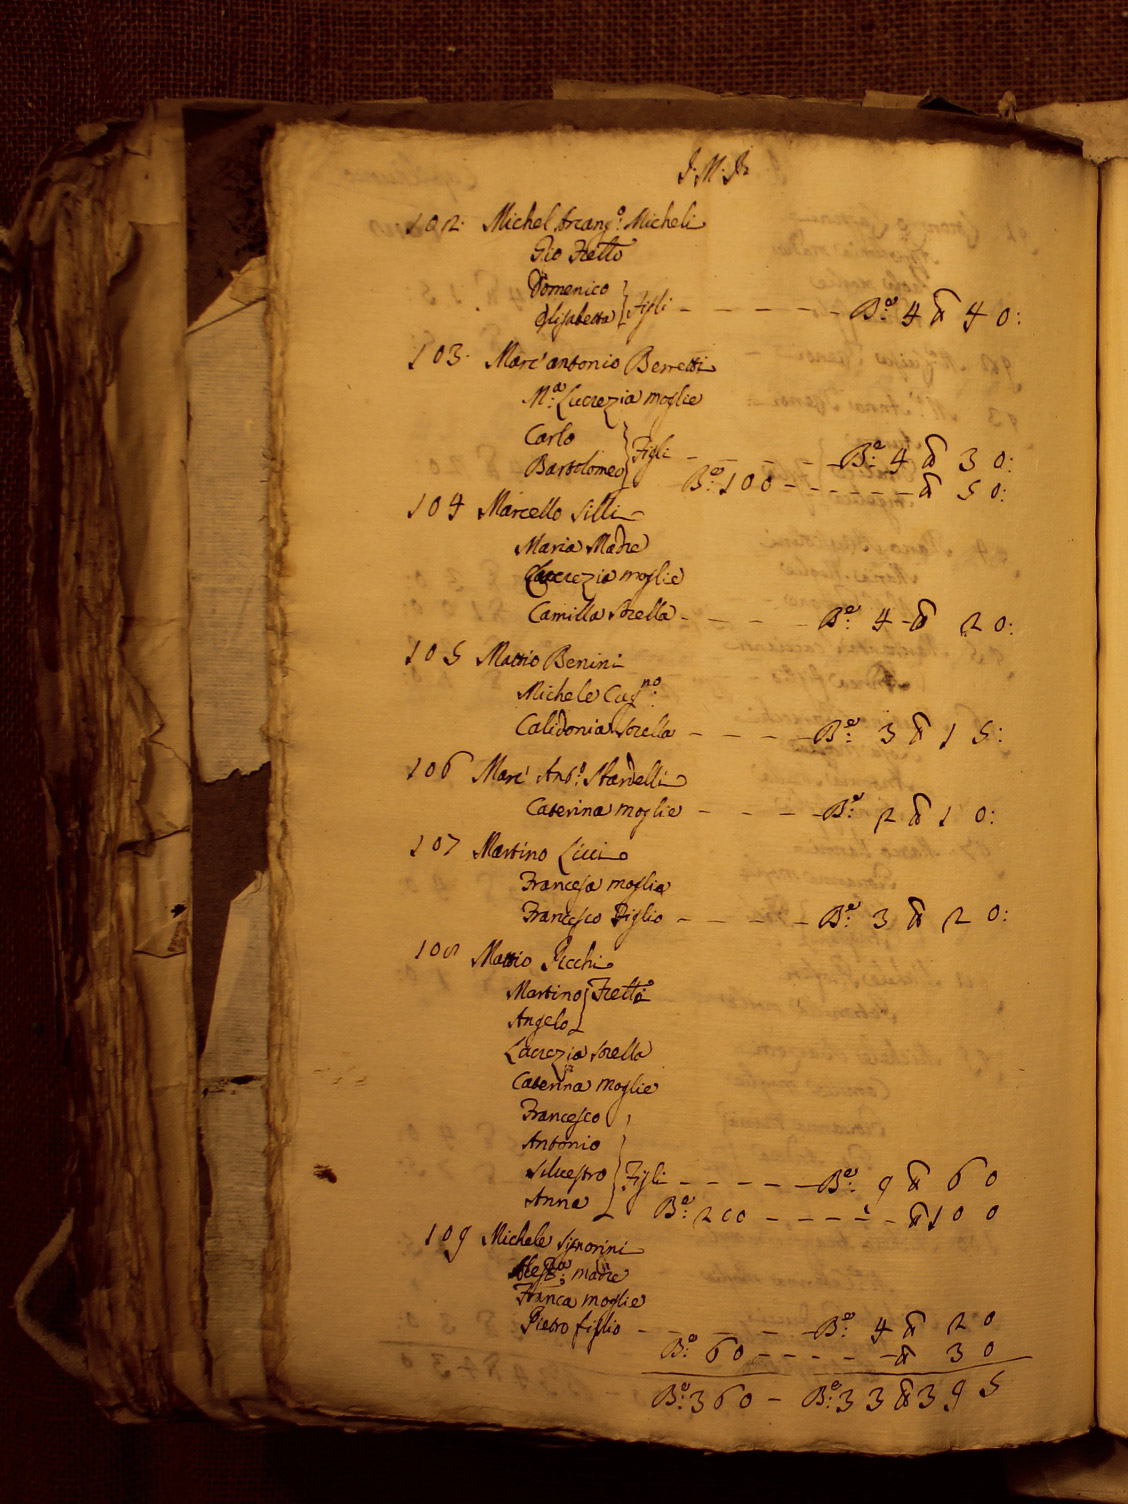 J. M. Jh
102. Michel Arcang.o Micheli
Gio Fretto
Domenico
Elisabetta } figli - - - - - - B.e 4 & 40:
103. Marc'antonio Berretti
M.a Lucrezia moglie
Carlo
Bartolomeo } Figli - - - - - B.e 4 & 30:
B.e 100 - - - - - & 50:
104 Marcello Silli
Maria Madre
Lucrezia moglie
Camilla Sorella - - - - B.e 4 - & 20:
105 Mattio Benini
Michele Cug.no
Calidonia Sorella - - - - B.e 3 & 15:
106 Marc' Ant.o Nardelli
Caterina moglie - - - - B.e 2 & 10:
107 Martino Licci
Francesa moglie
Francesco Figlio - - - - - B.e 3 & 20:
108 Mattio Picchi
Martino } Fretto
Angelo
Lucrezia Sorella
Caterina moglie
Francesco
Antonio
Silvestro } Figli - - - - - - B.e 9 & 60
Anna B.e 200 - - - - - - & 100
109 Michele Signorini
madre
Franca moglie
Pietro figlio - - - - - B.e 4 & 20
B.e 60 - - - - - & 30
B.e 360 - B.e 33 & 395